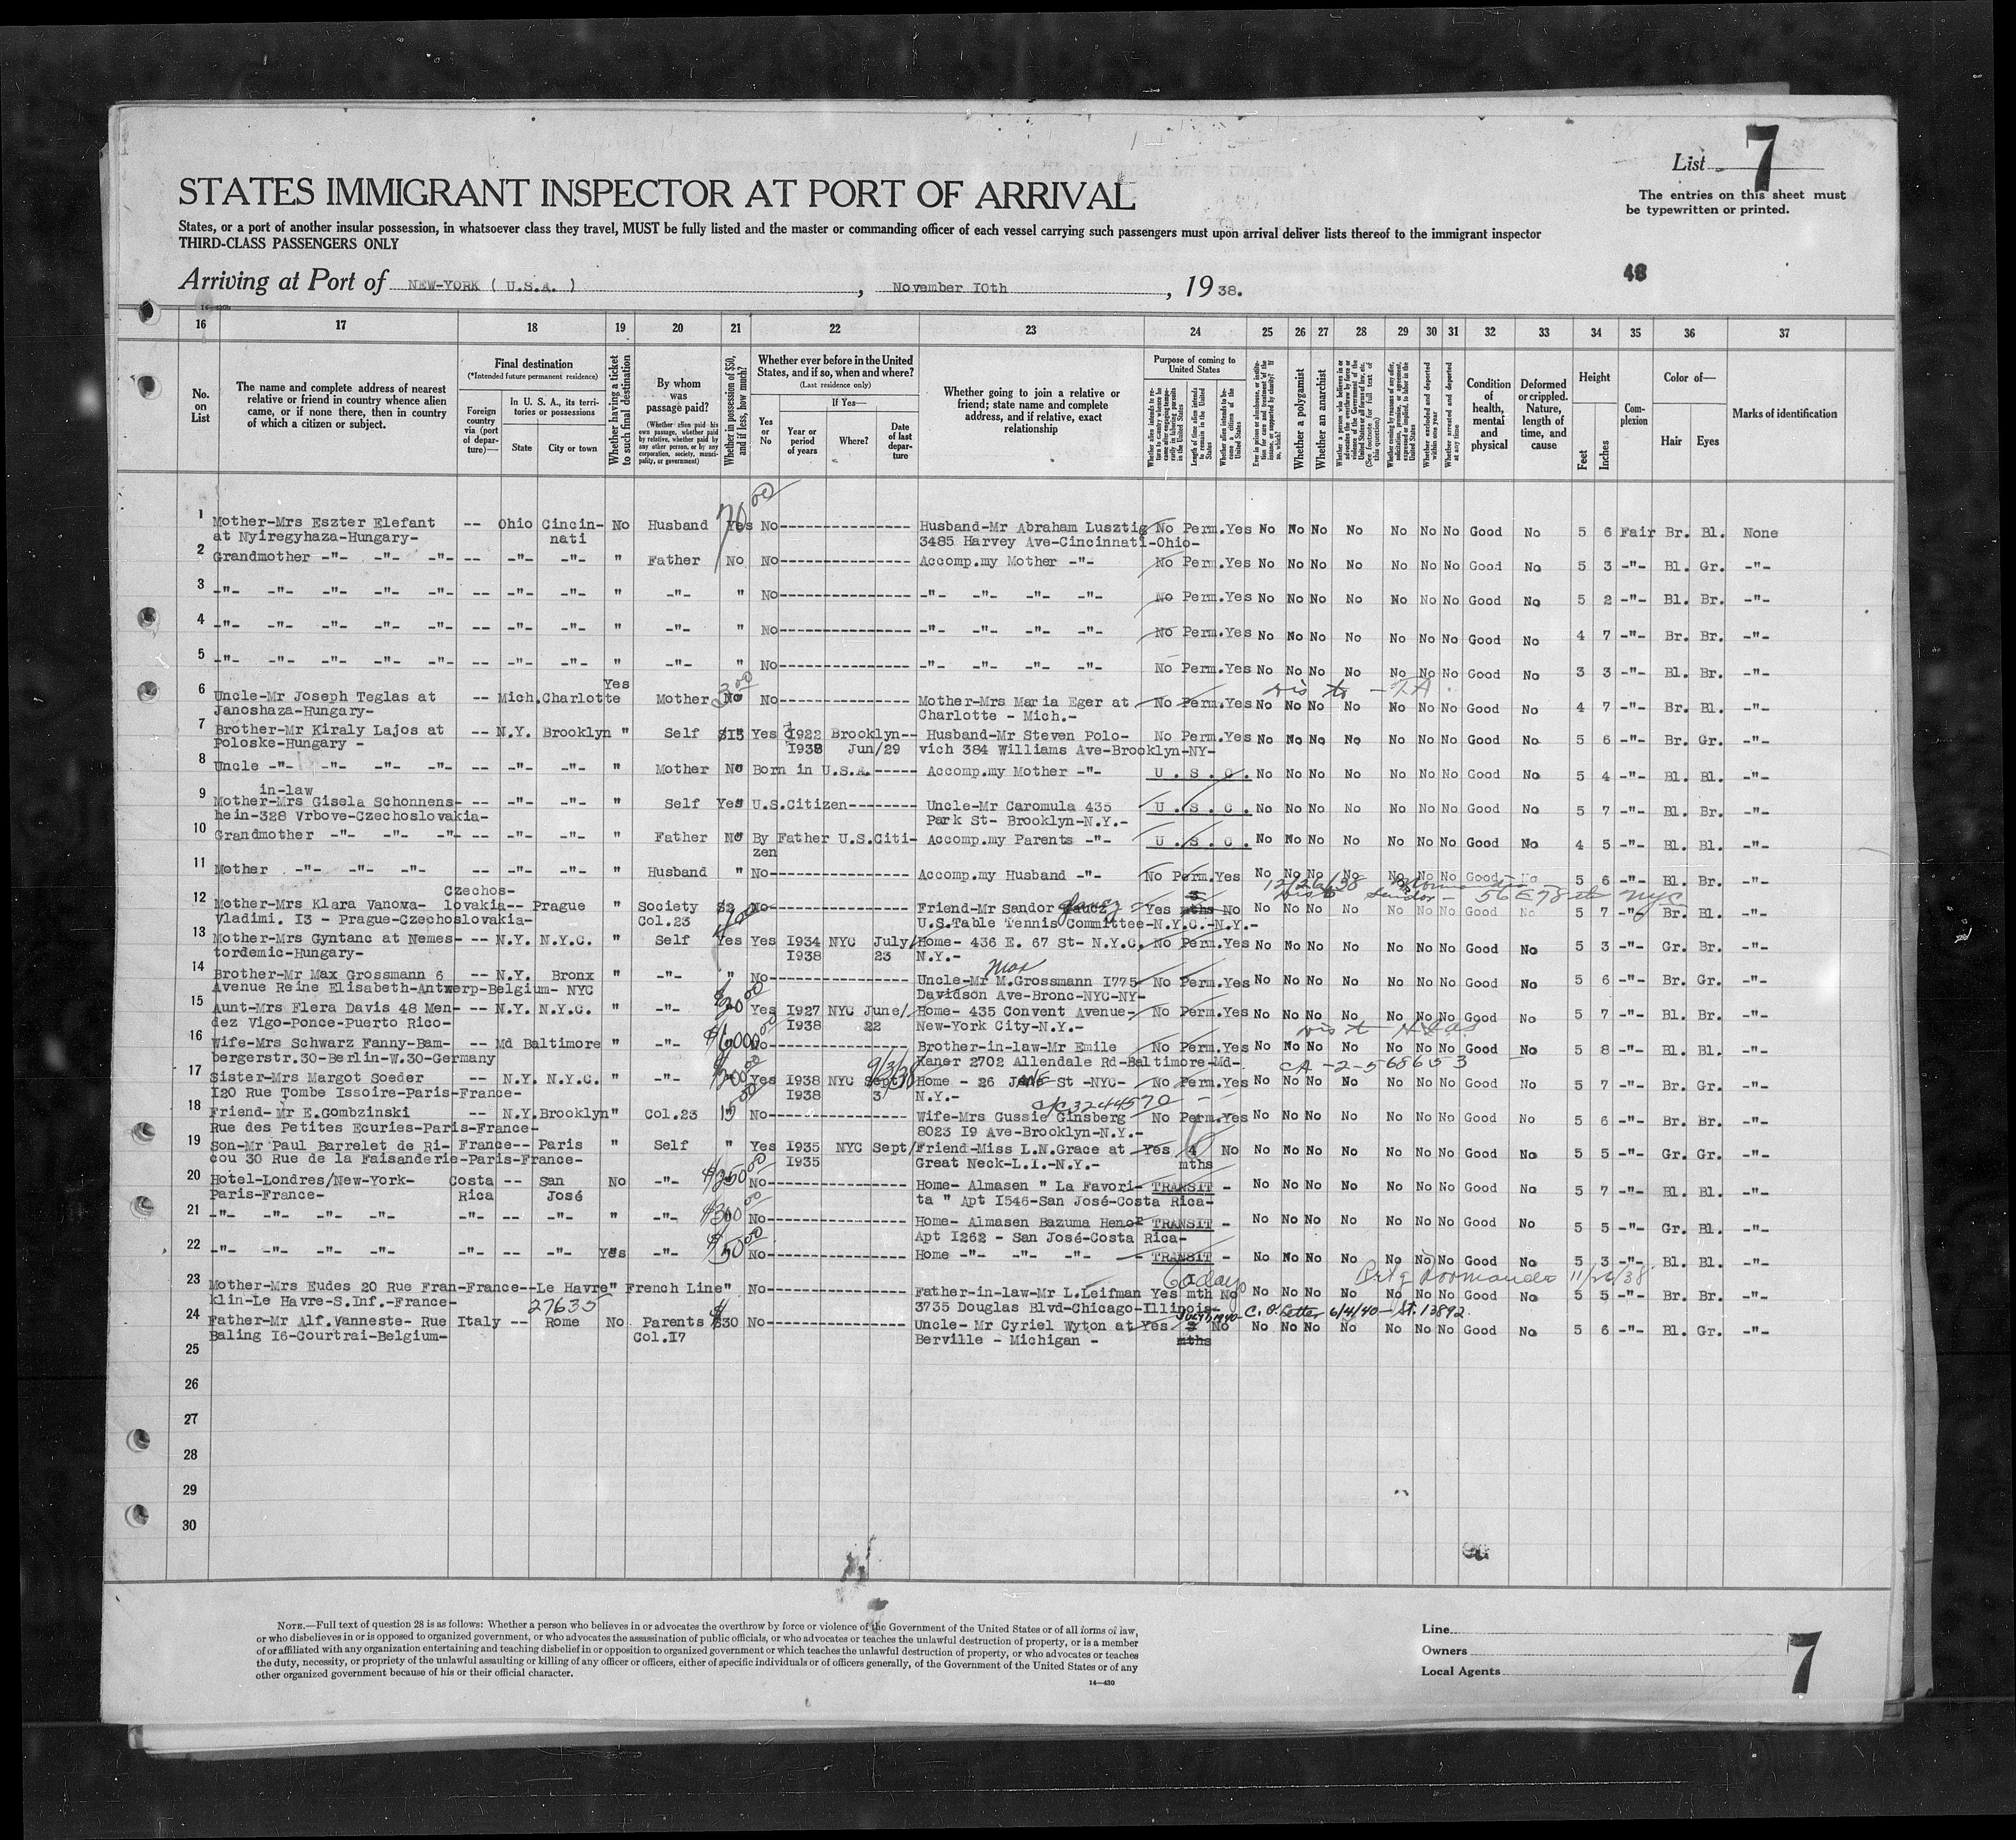 List 7
The entries on this sheet must
be typewritten or printed.
STATES IMMIGRANT INSPECTOR AT PORT OF ARRIVAL
States, or a port of another insular possession, in whatsoever class they travel, MUST be fully listed and the master or commanding officer of each vessel carrying such passengers must upon arrival deliver lists thereof to the immigrant inspector
THIRD-CLASS PASSENGERS ONLY
Arriving at Port of NEW-YORK ( U.S.A. ), November I0th, 1938.
48
16 17 18 19 20 21 22 23 24 25 26 27 28 29 30 31 32 33 34 35 36 37
No. on List
The name and complete address of nearest relative or friend in country whence alien came, or if none there, then in country of which a citizen or subject.
Final destination
(*Intended future permanent residence)
Foreign country via (port of departure)—
In U. S. A., its territories or possessions
State City or town
Whether having a ticket to such final destination
By whom was passage paid?
(Whether alien paid his own passage, whether paid by relative, whether paid by any other person, or by any corporation, society, municipality, or government)
Whether in possession of $50, and if less, how much?
Whether ever before in the United States, and if so, when and where?
(Last residence only)
Yes or No
If Yes—
Year or period of years Where? Date of last departure
Whether going to join a relative or friend; state name and complete address, and if relative, exact relationship
Purpose of coming to United States
Whether alien intends to return to country whence he came after engaging temporarily in laboring pursuits in the United States
Length of time alien intends to remain in the United States
Whether alien intends to become a citizen of the United States
Ever in prison or almshouse, or institution for care and treatment of the insane, or supported by charity? If so, which?
Whether a polygamist
Whether an anarchist
Whether a person who believes in or advocates the overthrow by force or violence of the Government of the United States or all forms of law, etc. (See footnote for full text of this question)
Whether coming by reason of any offer, solicitation, promise, or agreement, expressed or implied, to labor in the United States
Whether excluded and deported within one year
Whether arrested and deported at any time
Condition of health, mental and physical
Deformed or crippled. Nature, length of time, and cause
Height
Feet Inches
Complexion
Color of—
Hair Eyes
Marks of identification
1 Mother-Mrs Eszter Elefant -- Ohio Cincin- No Husband Yes 70 00 No---------------- Husband-Mr Abraham Lusztig No Perm.Yes No No No No No No No Good No 5 6 Fair Br. Bl. None
at Nyiregyhaza-Hungary- nati 3485 Harvey Ave-Cincinnati-Ohio-
2 Grandmother -"- -"- -"- -- -"- -"- " Father No No---------------- Accomp.my Mother -"- No Perm.Yes No No No No No No No Good No 5 3 -"- Bl. Gr. -"-
3 -"- -"- -"- -"- -"- -- -"- -"- " -"- " No---------------- -"- -"- -"- -"- No Perm.Yes No No No No No No No Good No 5 2 -"- Bl. Br. -"-
4 -"- -"- -"- -"- -"- -- -"- -"- " -"- " No---------------- -"- -"- -"- -"- No Perm.Yes No No No No No No No Good No 4 7 -"- Br. Br. -"-
5 -"- -"- -"- -"- -"- -- -"- -"- " -"- " No---------------- -"- -"- -"- -"- No Perm.Yes No No No No No No No Good No 3 3 -"- Bl. Br. -"-
6 Uncle-Mr Joseph Teglas at -- Mich.Charlotte Yes Mother No No---------------- Mother-Mrs Maria Eger at No Perm.Yes No No No No No No No Good No 4 7 -"- Br. Bl. -"-
Janoshaza-Hungary- Charlotte - Mich.-
7 Brother-Mr Kiraly Lajos at -- N.Y. Brooklyn " Self $I5 Yes I922 Brooklyn-- Husband-Mr Steven Polo- No Perm.Yes No No No No No No No Good No 5 6 -"- Br. Gr. -"-
Poloske-Hungary - I938 Jun/29 vich 384 Williams Ave-Brooklyn-NY-
8 Uncle -"- -"- -"- -"- -- -"- -"- " Mother No Born in U.S.A.----- Accomp.my Mother -"- U.S.C. No No No No No No No Good No 5 4 -"- Bl. Bl. -"-
in-law
9 Mother-Mrs Gisela Schonnens- -- -"- -"- " Self Yes U.S.Citizen-------- Uncle-Mr Caromula 435 U.S.C. No No No No No No No Good No 5 7 -"- Bl. Br. -"-
hein-328 Vrbove-Czechoslovakia- Park St- Brooklyn-N.Y.-
10 Grandmother -"- -"- -"- -- -"- -"- " Father No By Father U.S.Citi- Accomp.my Parents -"- U.S.C. No No No No No No No Good No 4 5 -"- Bl. Bl. -"-
zen
11 Mother -"- -"- -"- -- -"- -"- " Husband " No---------------- Accomp.my Husband -"- No Perm.Yes No No No No No No No Good No 5 6 -"- Bl. Br. -"-
Czechos-
12 Mother-Mrs Klara Vanowa- lovakia-- Prague " Society No-- Friend-Mr Sandor Yes 3 mths No No No No No No No No Good No 5 7 -"- Br. Bl. -"-
Vladimi. I3 - Prague-Czechoslovakia- Col.23 U.S.Table Tennis Committee-N.Y.C.-N.Y.-
12/26/38 Sandor - 56 E 78 st NYC
13 Mother-Mrs Gyntanc at Nemes- -- N.Y. N.Y.C. " Self Yes Yes I934 NYC July/ Home- 436 E. 67 St- N.Y.C. No Perm.Yes No No No No No No No Good No 5 3 -"- Gr. Br. -"-
tordemic-Hungary- I938 23 N.Y.-
14 Brother-Mr Max Grossmann 6 -- N.Y. Bronx " -"- " No---------------- Uncle-Mr M.Grossmann I775 Max No Perm.Yes No No No No No No No Good No 5 6 -"- Br. Gr. -"-
Avenue Reine Elisabeth-Antwerp-Belgium- NYC Davidson Ave-Bronc-NYC-NY-
15 Aunt-Mrs Flera Davis 48 Men- -- N.Y. N.Y.C. " -"- $20 00 Yes I927 NYC June/ Home- 435 Convent Avenue- No Perm.Yes No No No No No No No Good No 5 7 -"- Bl. Br. -"-
dez Vigo-Ponce-Puerto Rico- I938 22 New-York City-N.Y.-
16 Wife-Mrs Schwarz Fanny-Bam- -- Md Baltimore " -"- No---------------- Brother-in-law-Mr Emile No Perm.Yes No No No No No No No Good No 5 8 -"- Bl. Bl. -"-
bergerstr.30-Berlin-W.30-Germany Kaner 2702 Allendale Rd-Baltimore-Md-
17 Sister-Mrs Margot Soeder -- N.Y. N.Y.C. " -"- Yes I938 NYC Sept/ 9/3/38 Home - 26 JANE St -NYC- No Perm.Yes No No No No No No No Good No 5 7 -"- Br. Gr. -"-
I20 Rue Tombe Issoire-Paris-France- I938 3 N.Y.-
18 Friend- Mr E.Gombzinski -- N.Y.Brooklyn" Col.23 No---------------- Wife-Mrs Gussie Ginsberg No Perm.Yes No No No No No No No Good No 5 6 -"- Br. Br. -"-
Rue des Petites Ecuries-Paris-France- 8023 I9 Ave-Brooklyn-N.Y.-
19 Son-Mr Paul Barrelet de Ri- France-- Paris " Self " Yes I935 NYC Sept/ Friend-Miss L.N.Grace at Yes 4 No No No No No No No No Good No 5 5 -"- Gr. Gr. -"-
cou 30 Rue de la Faisanderie-Paris-France- I935 Great Neck-L.I.-N.Y.- mths
20 Hotel-Londres/New-York- Costa -- San No -"- $250 00 No---------------- Home- Almasen " La Favori- TRANSIT - No No No No No No No Good No 5 7 -"- Bl. Bl. -"-
Paris-France- Rica José ta " Apt I546-San José-Costa Rica-
21 -"- -"- -"- -"- -"- -- -"- " -"- $300 00 No---------------- Home- Almasen Bazuma Henor TRANSIT - No No No No No No No Good No 5 5 -"- Gr. Bl. -"-
Apt I262 - San José-Costa Rica-
22 -"- -"- -"- -"- -"- -- -"- Yes -"- $50 00 No---------------- Home -"- -"- -"- - TRANSIT - No No No No No No No Good No 5 3 -"- Bl. Bl. -"-
23 Mother-Mrs Eudes 20 Rue Fran-France--Le Havre" French Line" No---------------- Father-in-law-Mr L.Leifman Yes I mth No 60 days No No No No No No No Good No 5 5 -"- Br. Br. -"-
klin-Le Havre-S.Inf.-France- 27635 3735 Douglas Blvd-Chicago-Illinois- 11/26/38
24 Father-Mr Alf.Vanneste- Rue Italy -- Rome No Parents $30 No---------------- Uncle- Mr Cyriel Wyton at Yes 3 No No No No No No No No Good No 5 6 -"- Bl. Gr. -"-
Baling I6-Courtrai-Belgium- Col.I7 Berville - Michigan - mths
C.O. Letter 6/4/40 - St. 13892
25
26
27
28
29
30
NOTE.—Full text of question 28 is as follows: Whether a person who believes in or advocates the overthrow by force or violence of the Government of the United States or of all forms of law,
or who disbelieves in or is opposed to organized government, or who advocates the assassination of public officials, or who advocates or teaches the unlawful destruction of property, or is a member
of or affiliated with any organization entertaining and teaching disbelief in or opposition to organized government or which teaches the unlawful destruction of property, or who advocates or teaches
the duty, necessity, or propriety of the unlawful assaulting or killing of any officer or officers, either of specific individuals or of officers generally, of the Government of the United States or of any
other organized government because of his or their official character.
14—430
Line
Owners
Local Agents
7